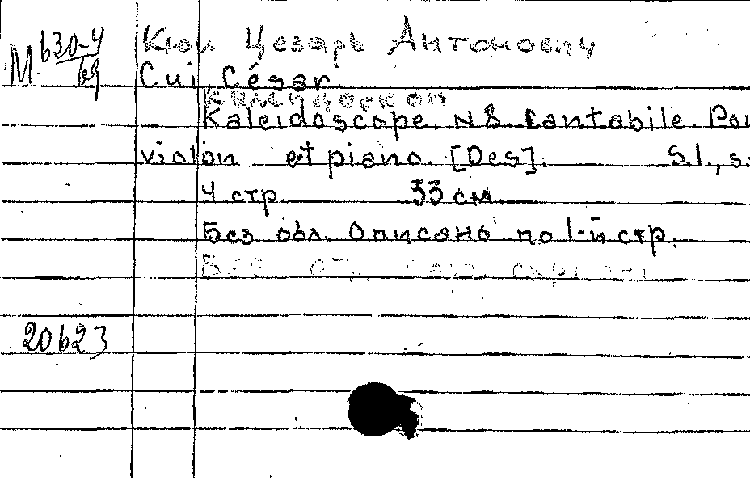 М 630-4/69
Кюи Цезарь Антонович
Cui César
Калейдоскоп
Kaleidoscope. N 8 Cantabile. Pou
violon et piano. [Des]. S.l., s.
4 стр. 33 см
Без обл. Описано по 1-й стр.
Без
20623